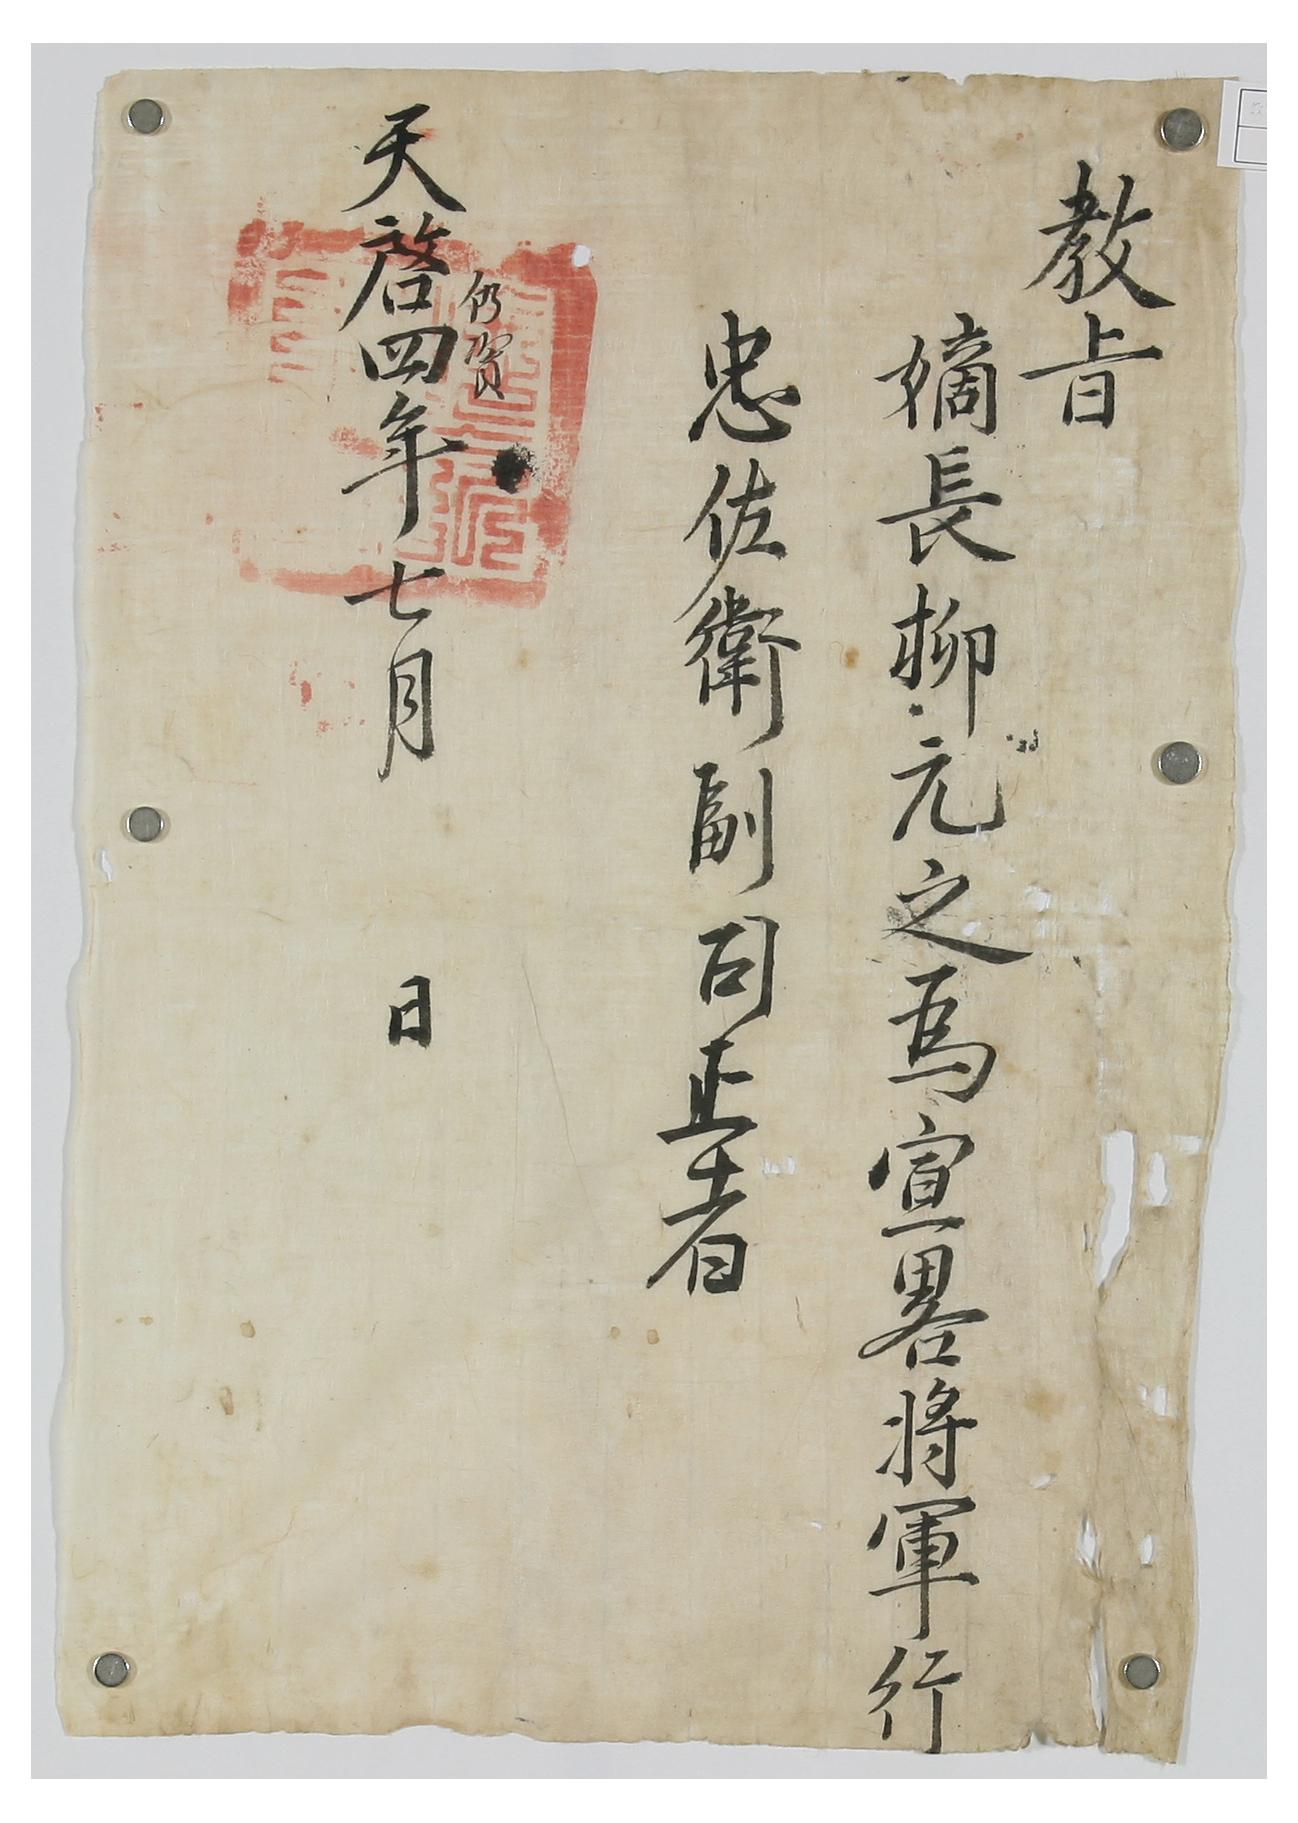 教旨
嫡長柳元之爲宣畧將軍行
忠佐衛副司正者
天啓四年七月 日
仍資